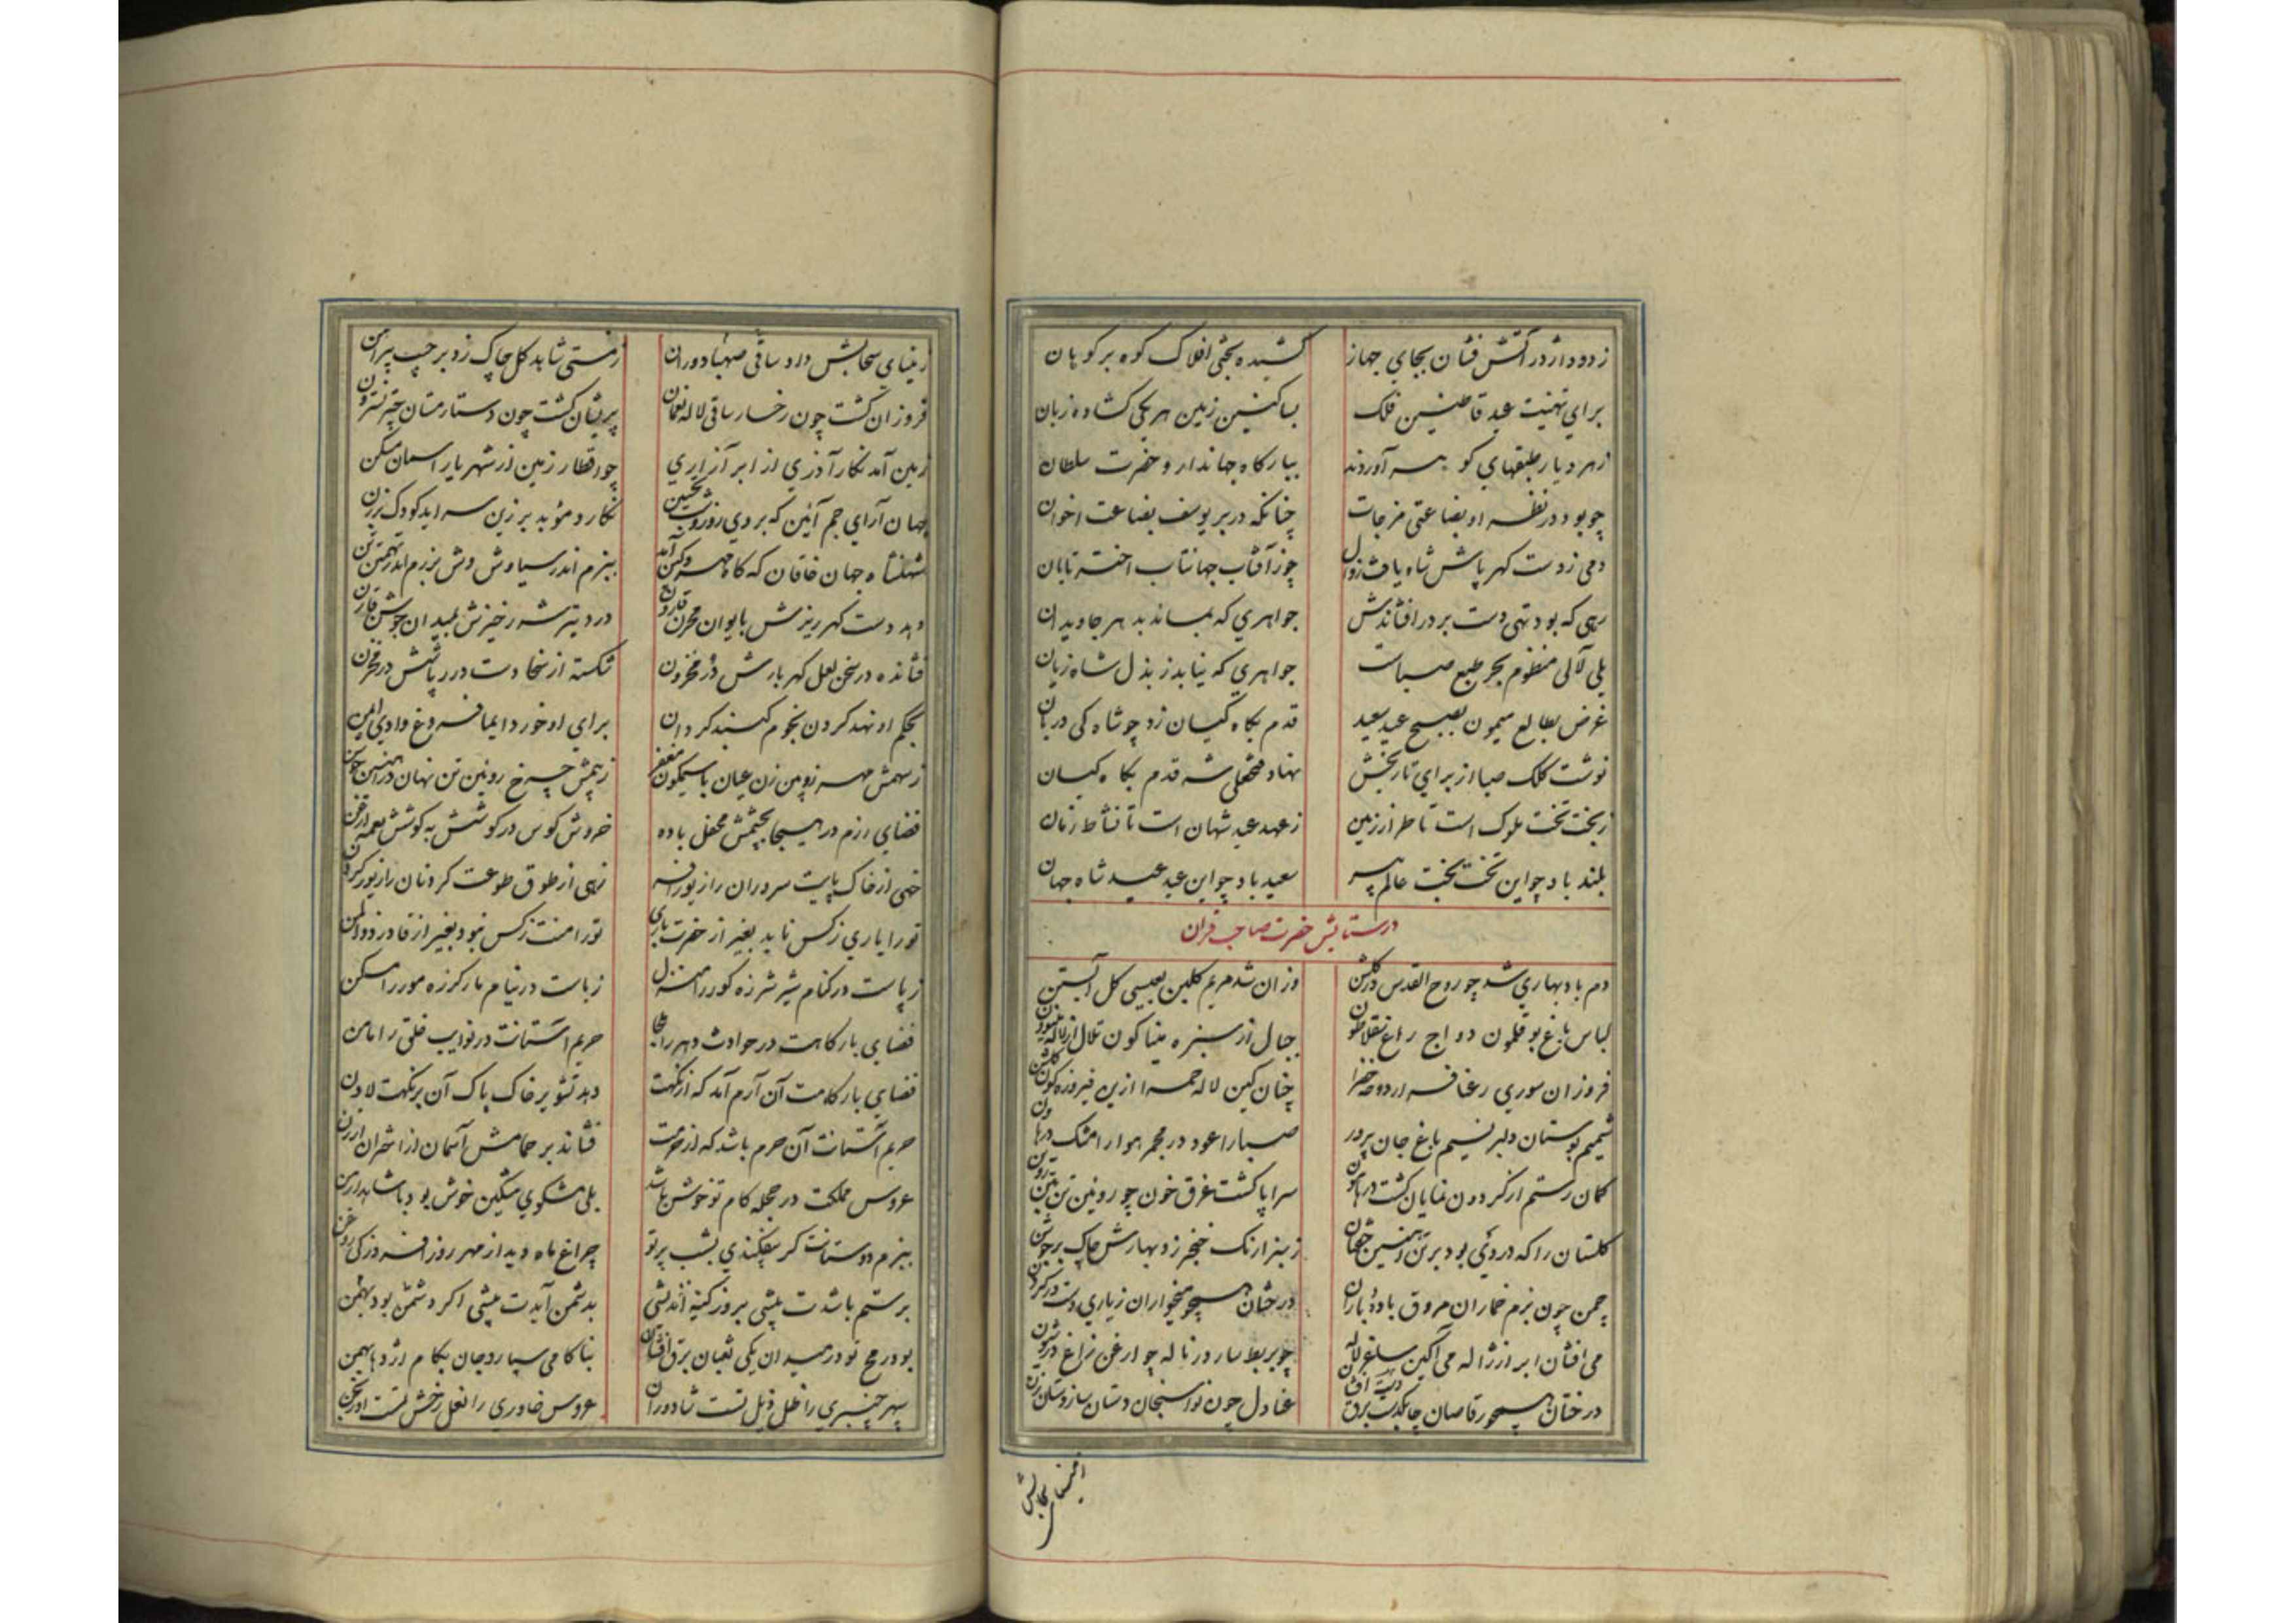 ز دود اژدر آتش فشان بجای جهاز کشیده بختی افلاک کوه بر کوهان
برای تهنیت عید قاطنین فلک بساکنین زمین هر یکی کشاده زبان
زهر دیار طبقهای کو هر آوردند ببارکاه جهاندار و حضرت سلطان
چو بود در نظر او بضاعتی مزجات چنانکه در بر یوسف بضاعت اخوان
دمی ز دست کهر پاش شاه یافت زوال چو ز آفتاب جهانتاب اختر تابان
رهی که بود تهی دست بر در افشاندش جواهری که بماند بدهر جاویدان
بلی لآلی منظوم بحر طبع صباست جواهری که نیابد ز بذل شاه زیان
غرض بطالع میمون بصبح عید سعید قدم بکاه کیان زد چو شاه کی دربان
نوشت کلک صبا از برای تاریخش نهاد فتحعلی شه قدم بکاه کیان
ز بخت تخت ملوک است تا طراز زمین ز عهد عید شهان است تا نشاط زمان
بلند باد چو این تخت بخت عالم پیر سعید باد چو این عید عید شاه جهان
در ستایش حضرت صاحب قران
دم باد بهاری شد چو روح القدس در کلشن وزان شد مریم کلبن بعیسی کل آبستن
لباس باغ بوقلمون دواج راغ سقلاطون جبال از سبزه مینا کون تلال از لاله
فروزان سوری رعنا فراز دوحه خضرا چنان کین لاله حمرا ازین فیروزه کون کلشن
شمیم بوستان دلبر نسیم باغ جان پرور صبا را عود در مجمر هوا را مشک در
کمان رستم از کردون نمایان کشت در سراپا کشت غرق خون چو روئین تن
کلستان را که در دی بود بر تن آهنین خفتان ز بیزارنک خنجر زد بهارش چاک بر جوشن
چمن چون بزم خماران مروق باده باران درختان همچو میخواران ز یاری دست در کردن
می افشان ابر از ژاله می آکین ساغر لاله چو بربط سار در ناله چو ارغن زاغ در شیون
درختان همچو رقاصان چابکدست دست افشان عنادل چون نواسنجان دستان ساز دستان زن
ز مینای سحابش داد ساقی صهبا دوران ز مستی شاهد کل چاک زد بر جیب پیراهن
فروزان کشت چون رخسار ساقی لاله نعمان پریشان کشت چون دستار مستان چتر نسترون
زمین آمد نکار آذری از ابر آزاری چو اقطار زمین از شهریار آسمان مسکن
جهان آرای جم آئین که بر دی روز و شب تحسین نکارد موبد برزین سراید کودک برزن
شهنشاه جهان خاقان که کاه مهر و کین آمد ببزم اندر سیاوش وش برزم اندر تهمتن تن
دهد دست کهر ریزش بایوان مخزن قارون درد تیر شرر خیزش بمیدان جوشن قارن
فشانده در سخن لعل کهر بارش در مخزون شکسته از سخا دست درر پاشش در مخزن
بحکم او نهد کردون نجوم کنبد کردان برای او خورد ایما فروغ وادی ایمن
ز سهمش مهر زوبین زن عیان با سیمکون مغفر ز بیمش چرخ روئین تن نهان در آهنین جوشن
فضای رزم در هیجا بچشمش محفل باده خروش کوس در کوشش به کوشش نغمه ارغن
خهی از خاک پایت سروران را زیور افسر زهی از طوق طوعت کردنان را زیور کردن
تو را یاری ز کس ناید بغیر از حضرت باری تو را منت ز کس نبود بغیر از قادر ذوالمن
ز پاست در کنام شیر شرزه کور را منزل ز باست در نیام مار کرزه مور را مسکن
فضای بارکاهت در حوادث دهر را ملجا حریم آستانت در نوایب خلق را مامن
فضای بارکاهت آن ارم آمد که از نکهت دهد تشویر خاک پاک آن بر نکهت لادن
حریم آستانت آن حرم باشد که از حرمت فشاند بر حمامش آسمان از اختران ارزن
عروس مملکت در حجله کام تو خوش باشد بلی مشکوی مشکین خوش بود با شاهد ارمن
ببزم دوستانت کر بیفکندی بشب پرتو چراغ ماه دید از مهر روز افروز کی روغن
برستم باشدت پیشی بروز کینه اندیشی بدشمن آیدت پیشی اکر دشمن بود بهمن
بود رمح تو در میدان یکی ثعبان برق افشان بناکامی سپارد جان بکام اژدها بهمن
سپهر چنبری را ظل ذیل تست شادروان عروس خاوری را نعل رخش تست اورنجن